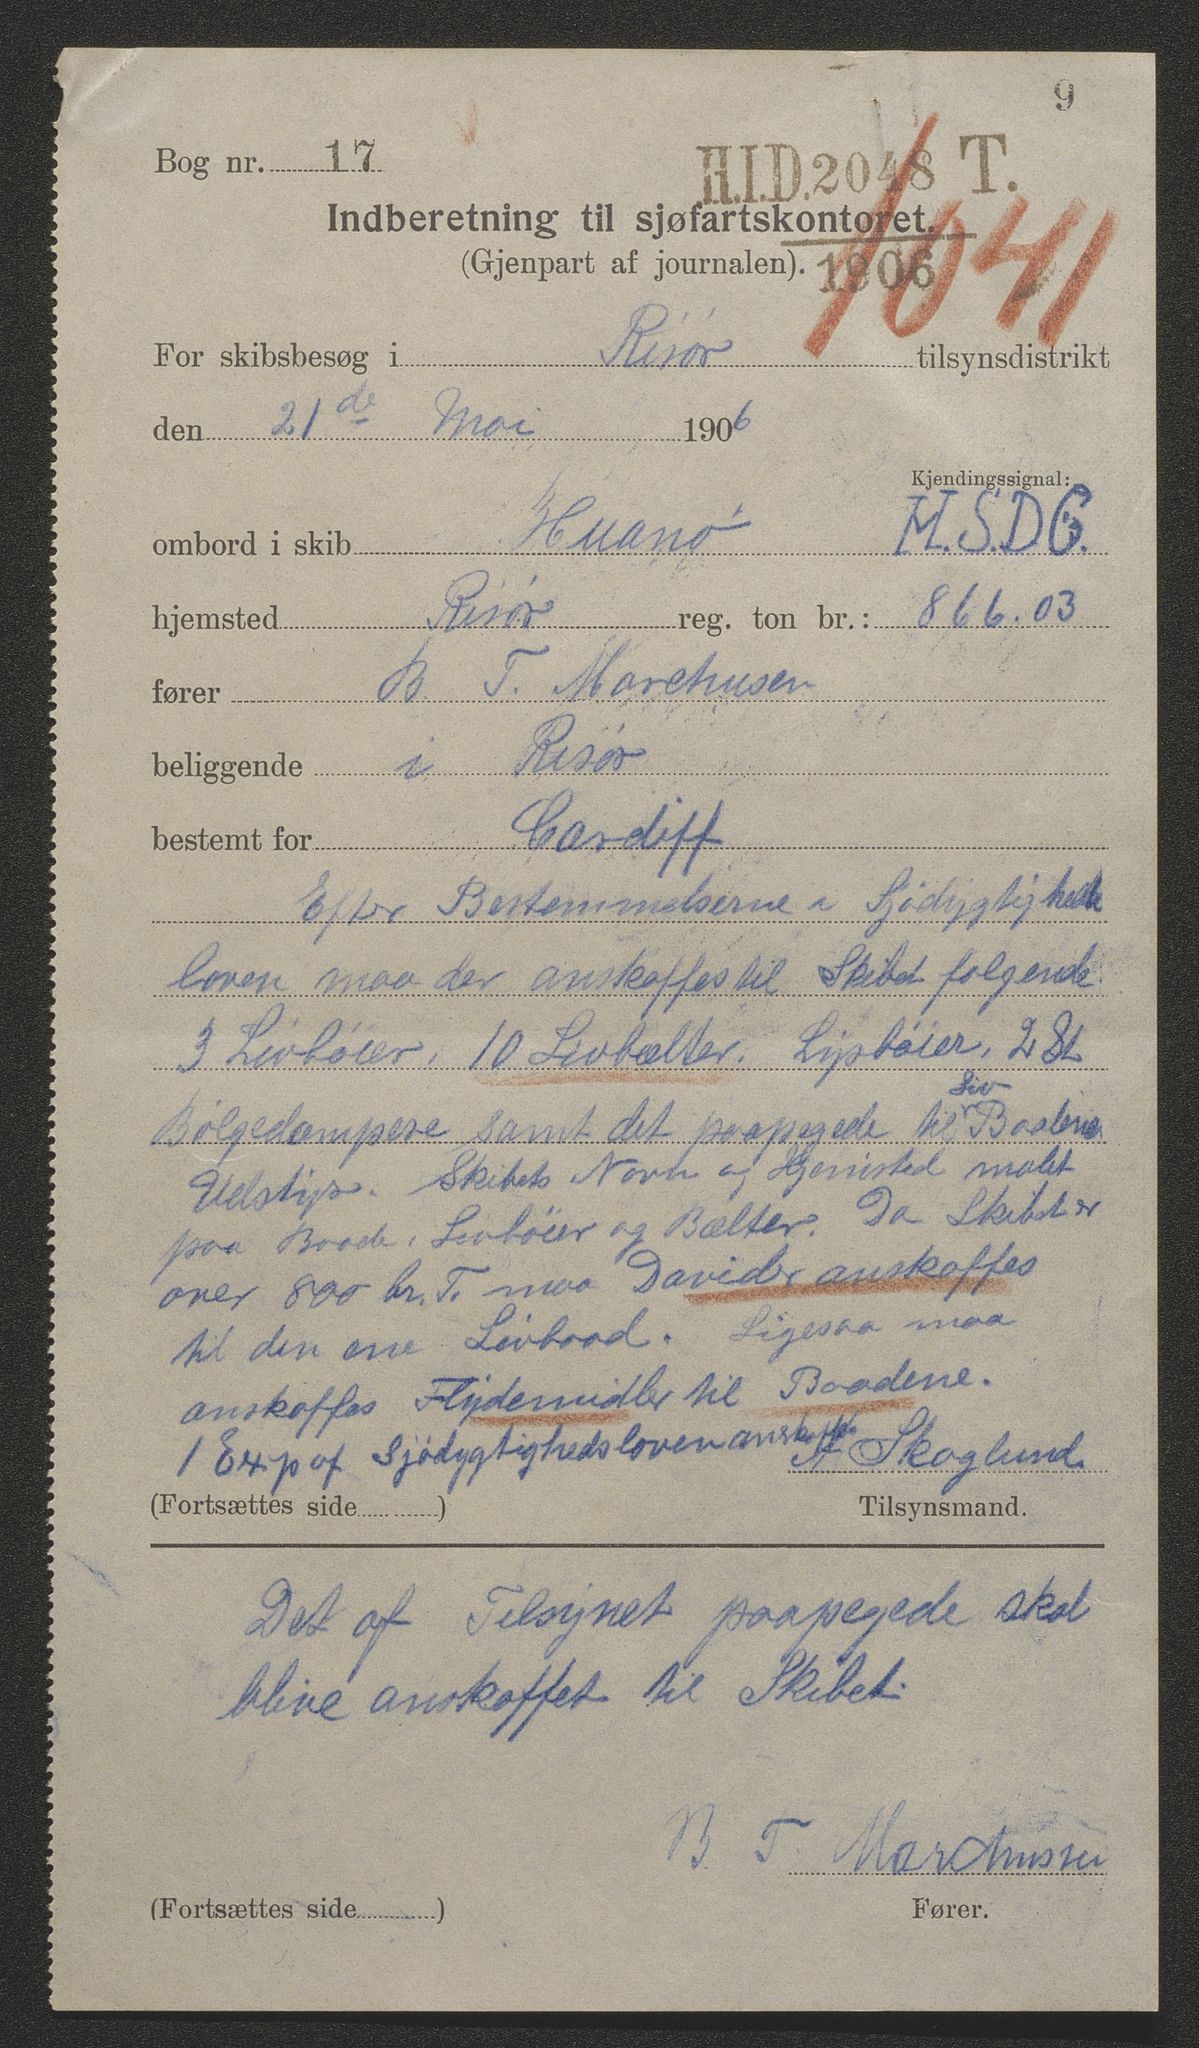 9
Bog nr. 17
H.I.D. 2048 T.
1041
Indberetning til sjøfartskontoret.
(Gjenpart af journalen). 1906
For skibsbesøg i Risør tilsynsdistrikt
den 21de Mai 1906
Kjendingssignal:
ombord i skib Huanó M.S.D.G.
hjemsted Risør reg. ton br.: 866.03
fører B. T. Marchusen
beliggende i Risør
bestemt for Cardiff
Efter Bestemmelserne i Sjödygtigheds
loven maa der anskaffes til Skibet følgende
3 Livbøier, 10 Livbælter. Lysbøier, 2 St
Bølgedæmpere samt det paapegede til Liv Baadens
Udstyr. Skibets Navn og Hjemsted malet
paa Baade, Livbøier og Bælter. Da Skibet er
over 800 br. T. maa Davider anskaffes
til den ene Livbaad. Ligesaa maa
anskaffes Flydemidler til Baadene.
1 Exp af Sjödygtighedsloven anskaffes
Skoglund.
(Fortsættes side ) Tilsynsmand.
Det af Tilsynet paapegede skal
blive anskaffet til Skibet.
B. T. Marchussen
(Fortsættes side ) Fører.